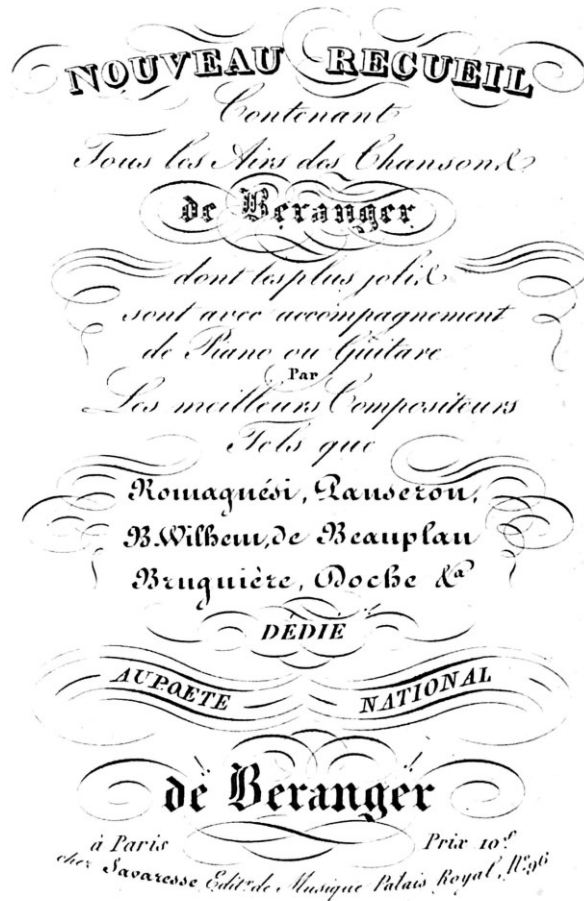 NOUVEAU RECUEIL
Contenant
Tous les Airs des Chansons
de Beranger
dont les plus jolis
sont avec accompagnement
de Piano ou Guitare
Par
Les meilleurs Compositeurs
Tels que
Romagnési, Panseron,
B. Wilhem, de Beauplan
Bruguière, Doche &a
DÉDIÉ
AU POETE NATIONAL
de Beranger
à Paris Prix 10f
chez Savaresse Editr de Musique Palais Royal, No 96